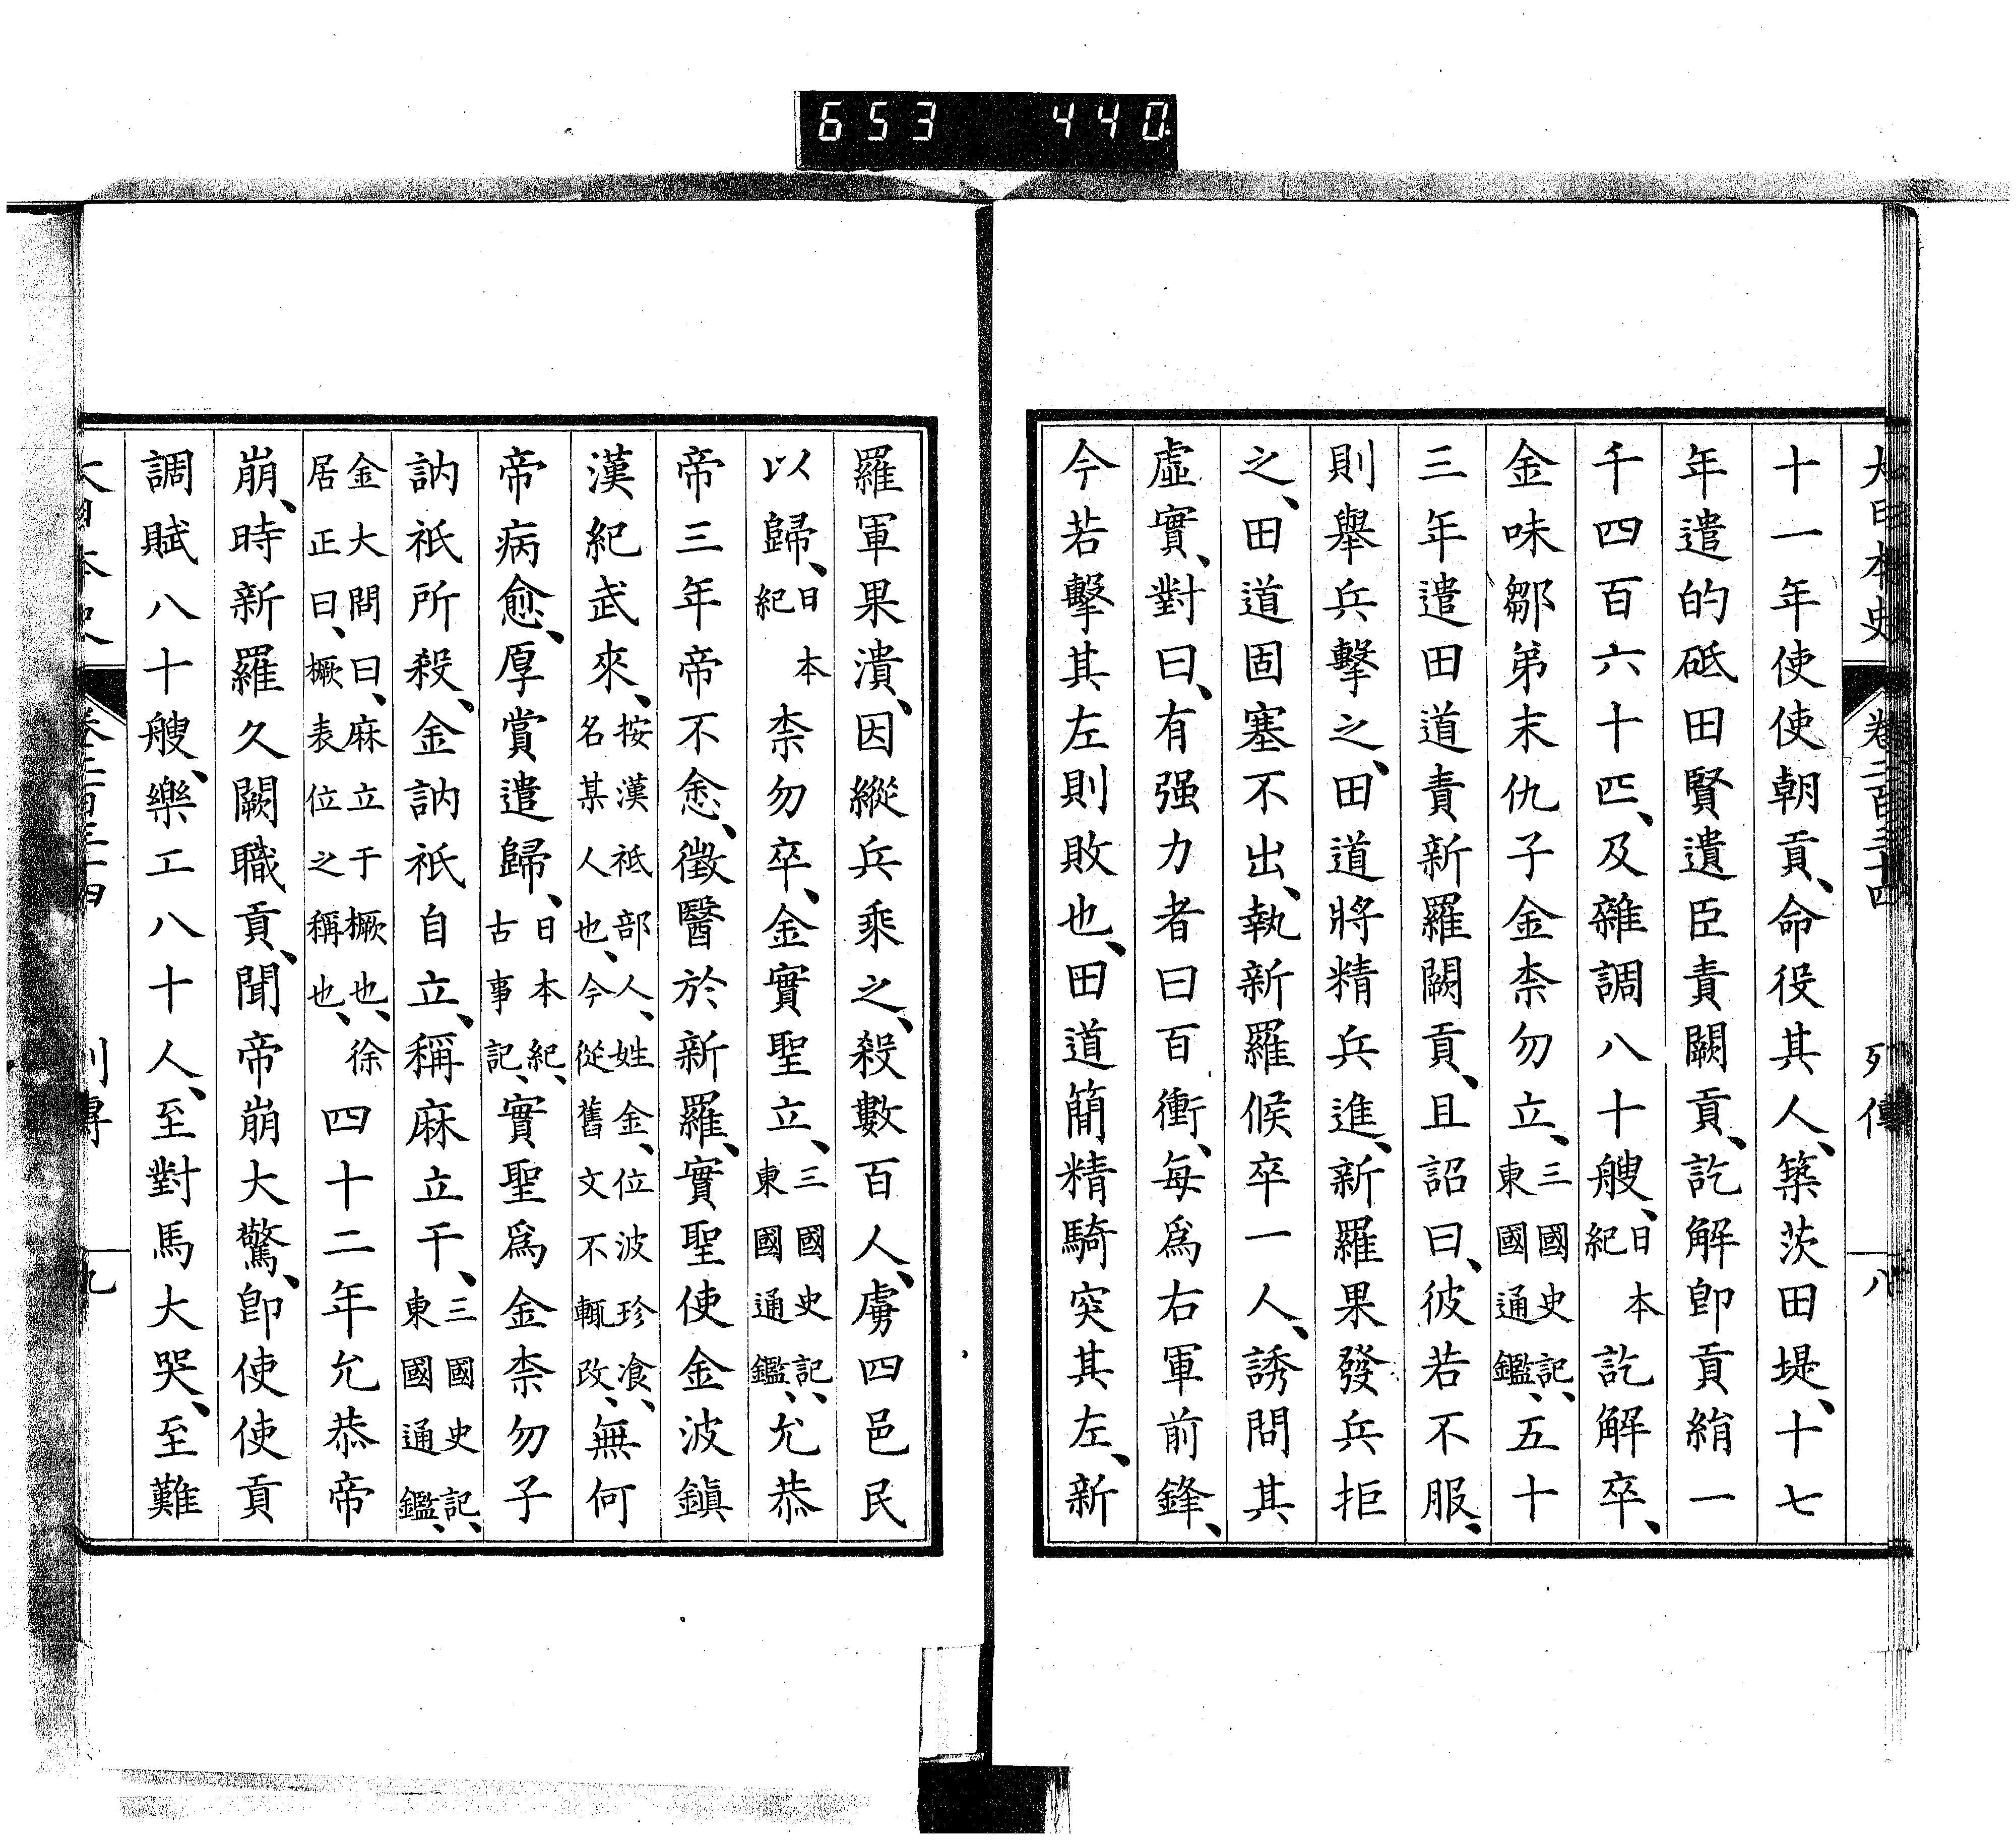 653 440
大日本史 卷二百三十四 列傳 八
十一年使使朝貢、命役其人、築茨田堤、十七
年遣的砥田賢遺臣責闕貢、訖解卽貢絹一
千四百六十匹、及雜調八十艘、日本紀訖解卒、
金味鄒弟末仇子金柰勿立、三國史記、東國通鑑、五十
三年遣田道責新羅闕貢、且詔曰、彼若不服、
則舉兵擊之、田道將精兵進、新羅果發兵拒
之、田道固塞不出、執新羅候卒一人、誘問其
虛實、對曰、有强力者曰百衝、每爲右軍前鋒、
今若擊其左則敗也、田道簡精騎突其左、新
羅軍果潰、因縱兵乘之、殺數百人、虜四邑民
以歸、日本紀柰勿卒、金實聖立、三國史記、東國通鑑、允恭
帝三年帝不悆、徵醫於新羅、實聖使金波鎭
漢紀武來、按漢祇部人、姓金、位波珍飡、名某人也、今從舊文不輒改、無何
帝病愈、厚賞遣歸、日本紀、古事記、實聖爲金柰勿子
訥祇所殺、金訥祇自立、稱麻立干、三國史記、東國通鑑、
金大問曰、麻立于橛也、徐居正曰、橛表位之稱也、四十二年允恭帝
崩、時新羅久闕職貢、聞帝崩大驚、卽使使貢
調賦八十艘、樂工八十人、至對馬大哭、至難
大日本史 卷二百三十四 列傳 九